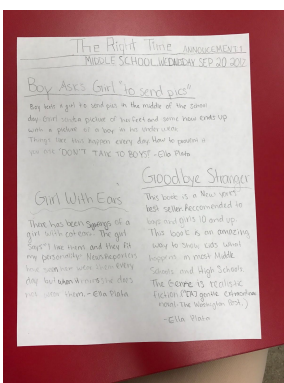 The Right Time ANNOUCEMENTS
MIDDLE SCHOOL WEDNSDAY SEP 20 2017
Boy Asks Girl "to send pics"
Boy bets a girl to send pics in the middle of the school
day. Girl sends a picture of her feet and some how ends up
with a picture of a boy in his underwere.
Things like this happen every day. How to prevent is
you ask "DON'T TALK TO BOYS!" -Ella Plata
Girl With Ears
There has been syings of a
girl with cat ears. The girl
Says "I like them and they fit
my personality." News Reporters
have seen her wear them every
day but when she does
not wear them. - Ella Plata
Goodbye Stranger
This book is a New yorks'
best seller. Reccomended to
boys and girls 10 and up.
This book is an amazing
way to show kids what
happens in most Middle
Schools and High Schools.
The Genre is realistic
fiction. ("[A] gentle
novel" The Washington Post.)
-Ella Plata